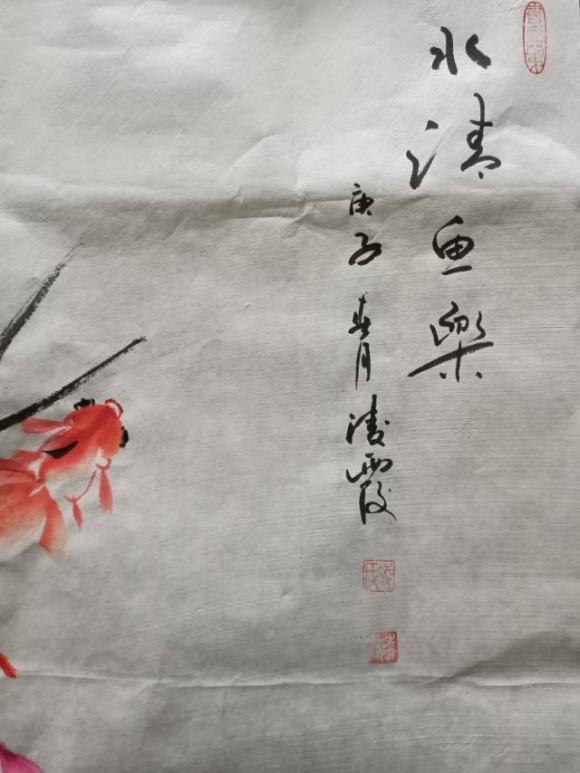 水清鱼樂
庚子春月凌霞